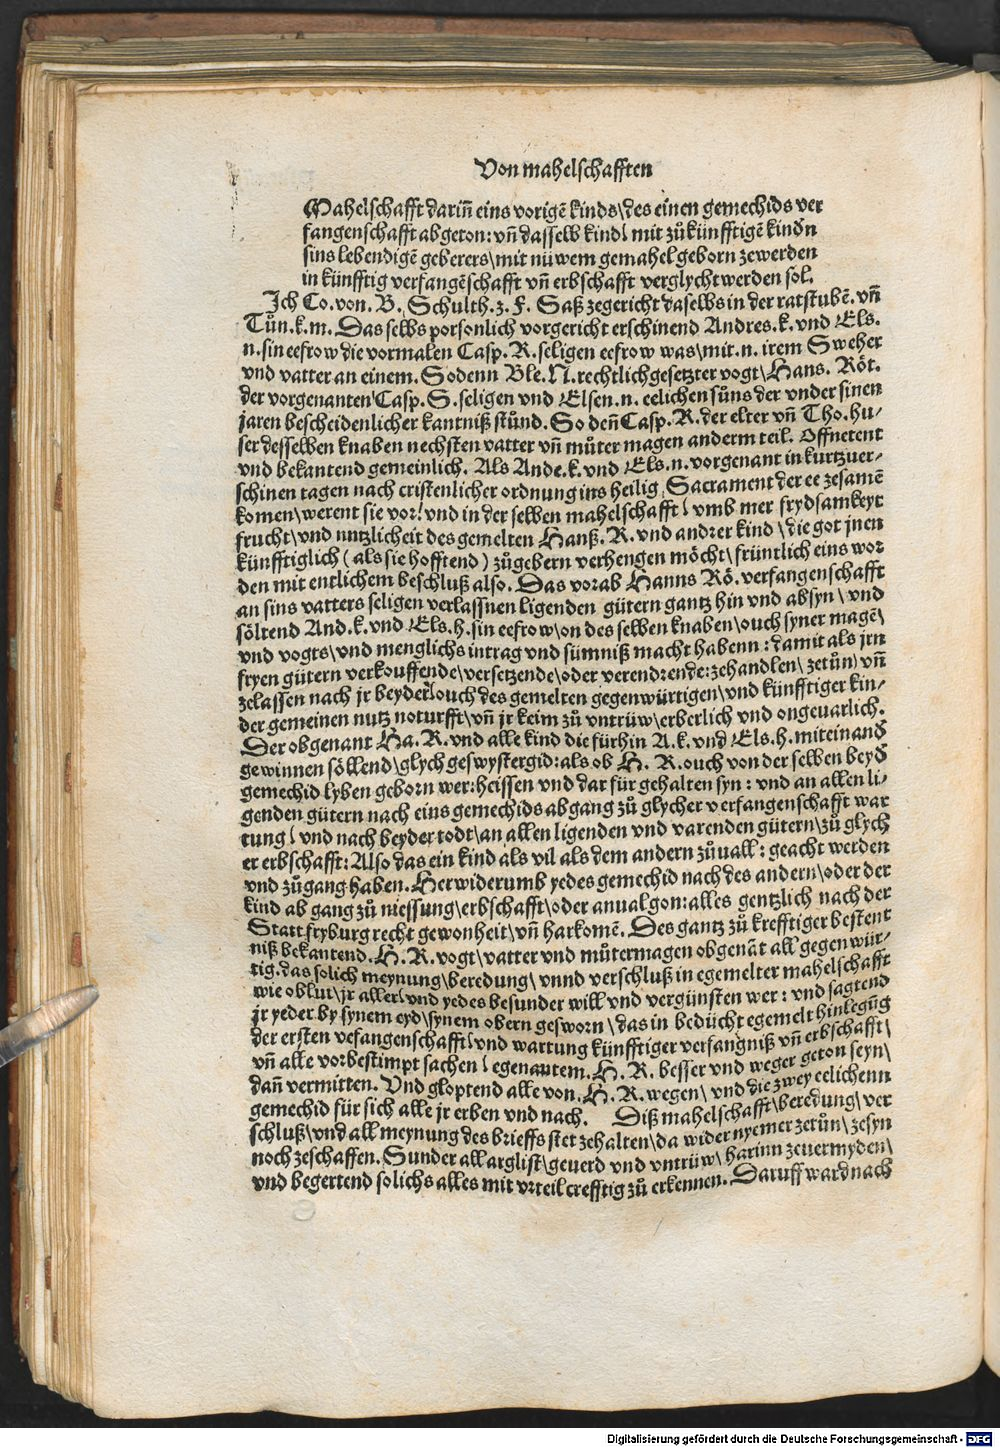 Von mahelschafften
Mahelschafft darin̄ eins vorigē kinds\des einen gemechids ver
fangenschafft abgeton: vn̄ dasselb kind\ mit zůkünfftigē kindn
sins lebendigē geberers\mit nüwem gemahel geborn zewerden
in künfftig verfangēschafft vn̄ erbschafft verglycht werden sol.
Ich Co. von. B. Schulth. z. F. Saß ze gericht daselbs in der ratstubē. vn̄
Tůn. k. m. Das selbs porsonlich vorgericht erschinend Andres. k. vnd Els.
n. sin eefrow die vormalen Casp. R. seligen eefrow was\mit. n. irem Sweher
vnd vatter an einem. Sodenn Ble. N. rechtlichgesetzter vogt\Hans. Röt.
der vorgenanten Casp. S. seligen vnd Elsen. n. eelichen sůns der vnder sinen
jaren bescheidenlicher kantniß stůnd. So den̄ Casp. R. der elter vn̄ Tho. hu-
ser desselben knaben nechsten vatter vn̄ můter magen anderm teil. Offnetent
vnd bekantend gemeinlich. Als Ande. k. vnd Els. n. vorgenant in kurtzuer-
schinen tagen nach cristenlicher ordnung ins heilig Sacrament der ee zesamē
komen\werent sie vor\ vnd in der selben mahelschafft\ vmb mer frydsamkeyt
frucht\vnd nutzlicheit des gemelten Hanß. R. vnd andrer kind\die got jnen
künfftiglich (als sie hofftend) zůgebern verhengen möcht\früntlich eins wor
den mit entlichem beschluß also. Das vorab Hanns Rö. verfangenschafft
an sins vatters seligen verlassnen ligenden gütern gantz hin vnd absyn\ vnd
söltend And. k. vnd Els. h. sin eefrow\on des selben knaben\ouch syner magē\
vnd vogts\vnd menglichs intrag vnd sümniß macht habenn: damit als jrn
fryen gütern verkouffende\versetzende\oder verendrende: zehandlen\ zetůn) vn̄
zelassen nach jr beyder\ ouch des gemelten gegenwürtigen\vnd künfftiger kin-
der gemeinen nutz noturfft\vn̄ jr keim zů vntrüw\erberlich vnd ongeuarlich.
Der obgenant Ha. R. vnd alle kind die fürhin A. k. vnd Els. h. miteinand
gewinnen söllend\glych geswystergid: als ob H. R. ouch von der selben beyd
gemechid lyben geborn wer: heissen vnd dar für gehalten syn: vnd an allen li-
genden gütern nach eins gemechids abgang zů glycher verfangenschafft war
tung\ vnd nach beyder todt\an allen ligenden vnd varenden gütern\zů glych
er erbschafft: Also das ein kind als vil als dem andern zůuall: geacht werden
vnd zůgang haben. Herwiderumb yedes gemechid nach des andern\oder der
kind ab gang zů niessung\erbschafft\oder anual gon: alles gentzlich nach der
Statt fryburg recht gewonheit\vn̄ harkomē. Des gantz zů krefftiger bestent
niß bekantend. H. R. vogt\vatter vnd můtermagen obgenāt all gegenwür-
tig. das solich meynung\beredung\ vnnd verschluß in egemelter mahelschafft
wie oblut\jr aller\ vnd yedes besunder will vnd vergünsten wer: vnd sagtend
jr yeder by synem eyd\synem obern gesworn\das in bedücht egemelt hinlegūg
der ersten vefangenschafft\ vnd wartung künfftiger verfangniß vn̄ erbschafft\
vn̄ alle vorbestimpt sachen\ egenantem. H. R. besser vnd weger geton seyn\
dan̄ vermitten. Vnd gloptend alle von. H. R. wegen\ vnd die zwey eelichenn
gemechid für sich alle jr erben vnd nach. Diß mahelschafft\beredung\ ver
schluß\vnd all meynung des brieffs stet zehalten\da wider nyemer zetůn\ zesyn
noch zeschaffen. Sunder all arglist\geuerd vnd vntrüw\ harinn zeuermyden\
vnd begertend solichs alles mit vrteil crefftig zů erkennen. Daruff ward nach
Digitalisierung gefördert durch die Deutsche Forschungsgemeinschaft - DFG